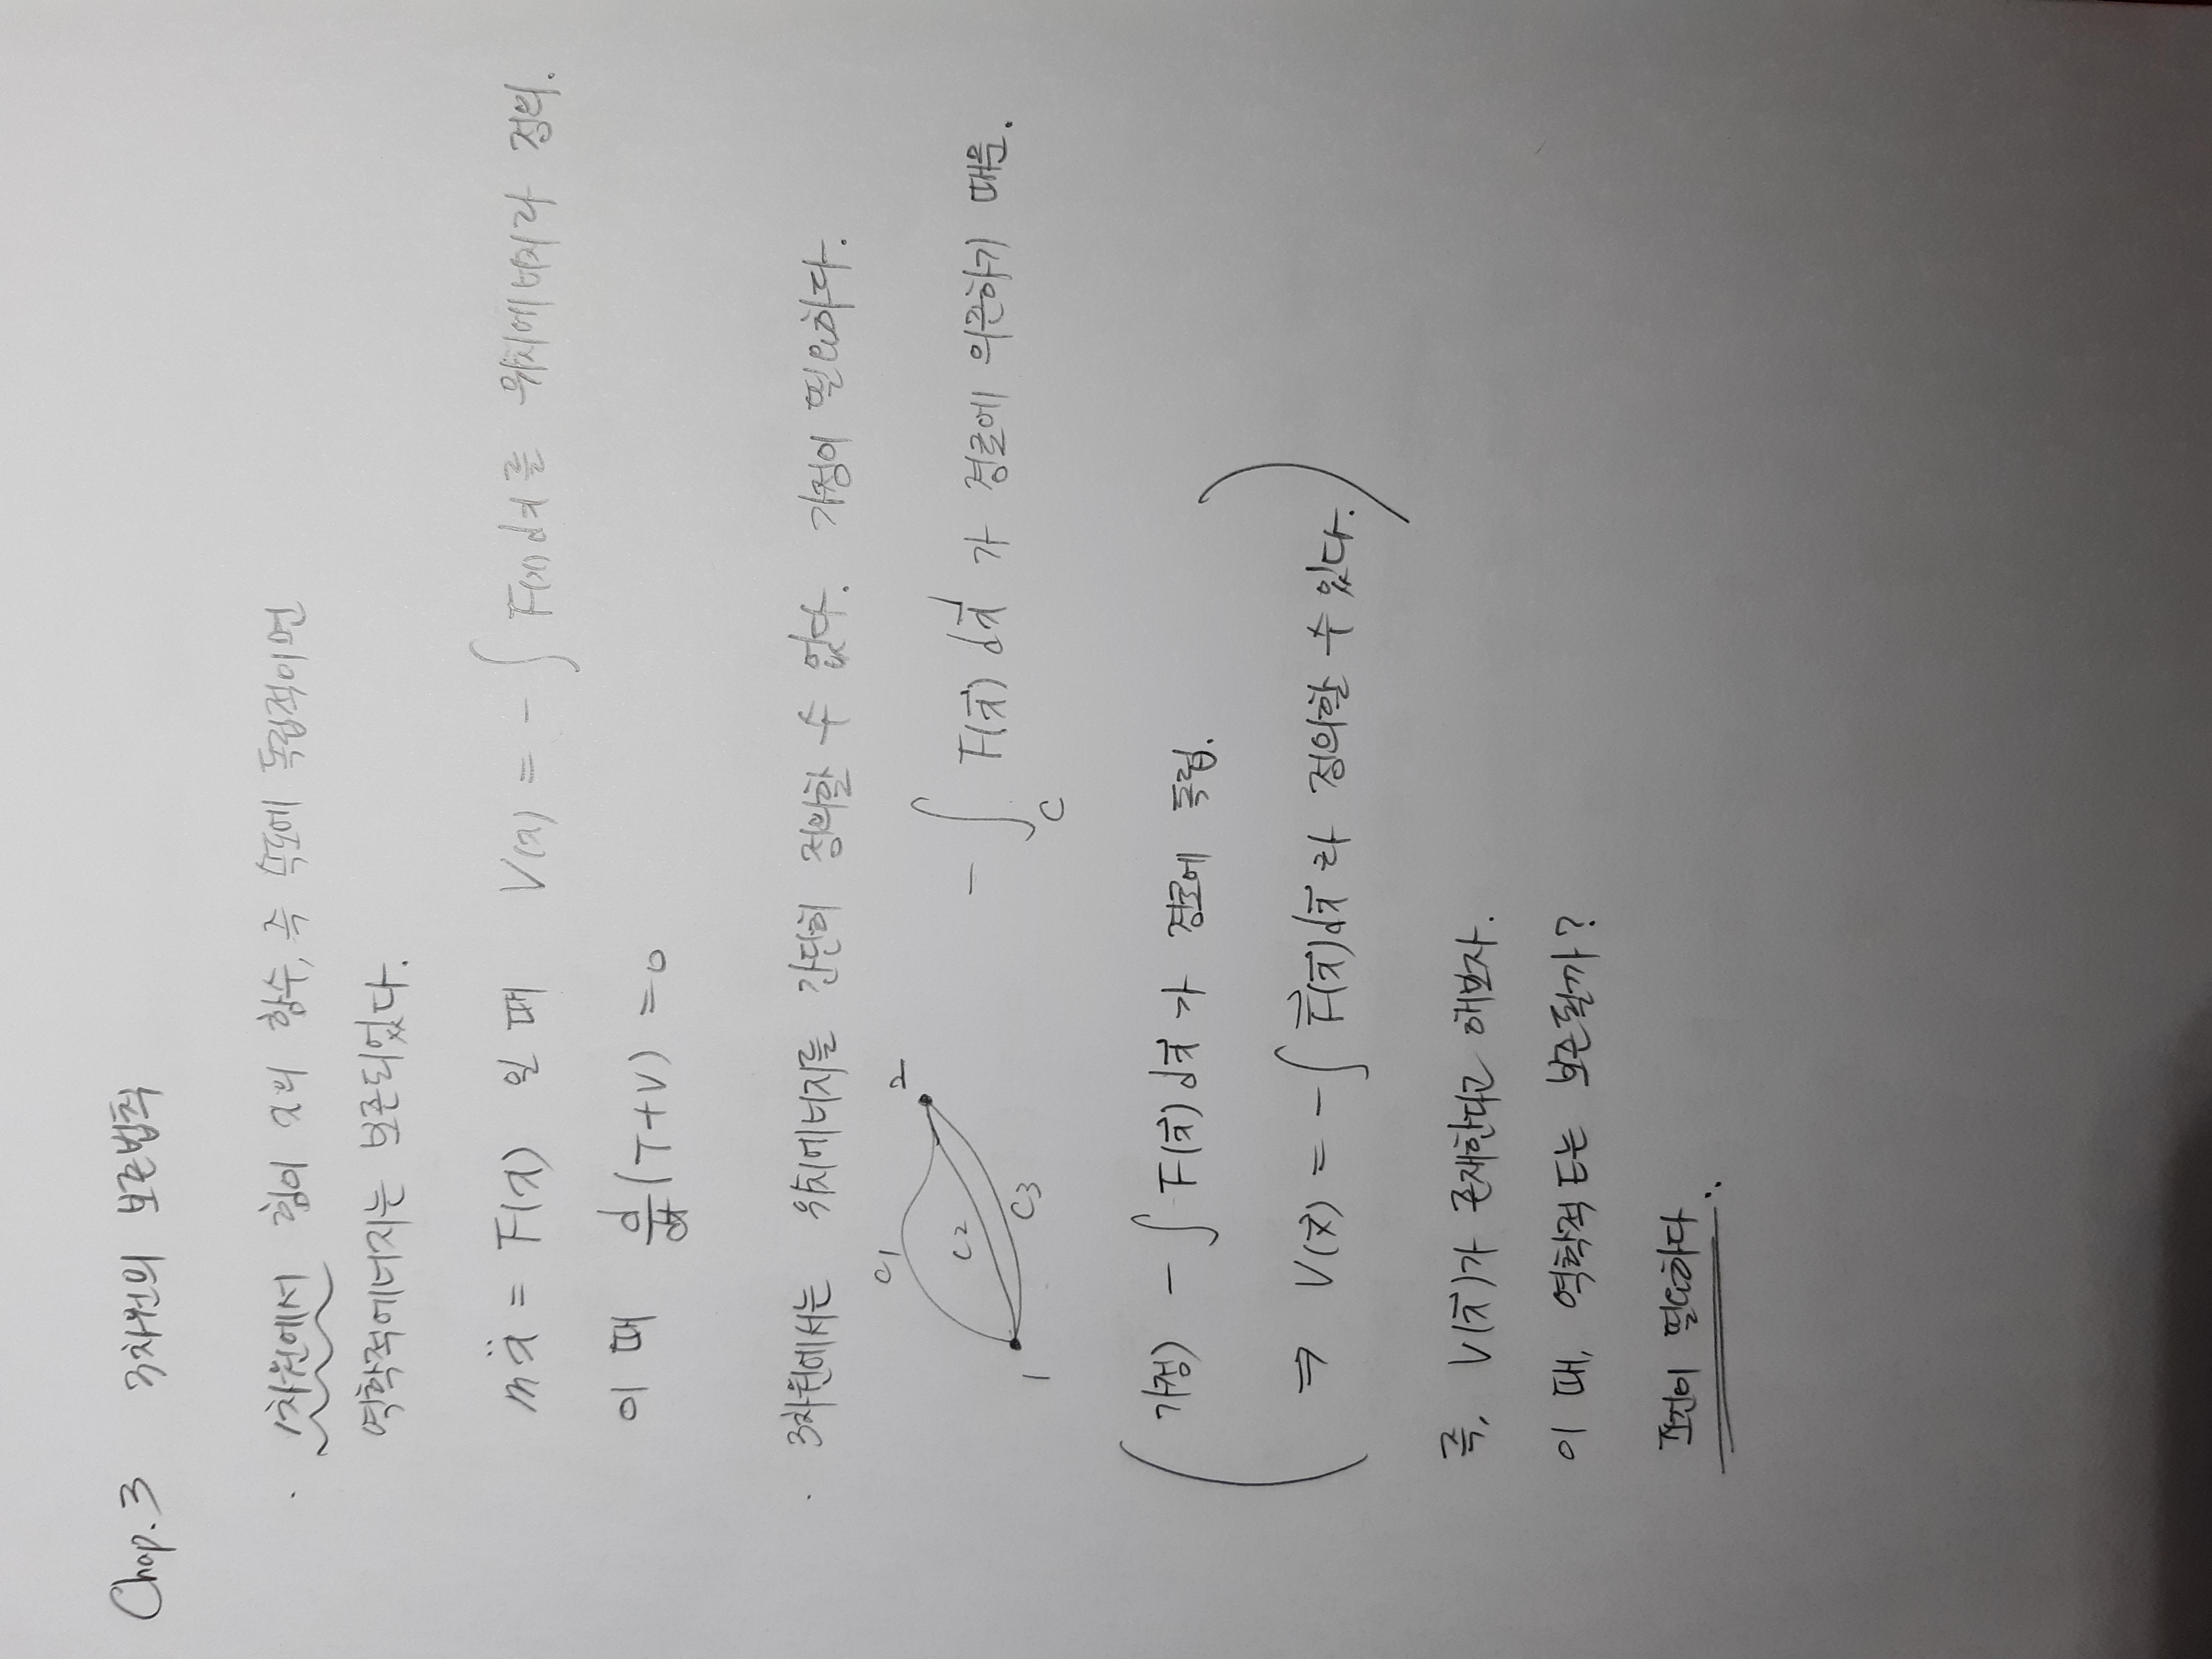 Chap. 3 3차원의 보존법칙
· 1차원에서 힘이 x의 함수, 즉 속도에 독립적이면
역학적에너지는 보존되었다.
mẍ = F(x) 일 때 V(x) = - ∫ F(x)dx를 위치에너지라 정의.
이 때 d/dt (T+V) = 0
· 3차원에서는 위치에너지를 간단히 정의할 수 없다. 가정이 필요하다.
1 2 C1 C2 C3 - ∫_C F(x⃗) dx⃗ 가 경로에 의존하기 때문.
( 가정) - ∫ F(x⃗) dx⃗ 가 경로에 독립.
⇒ V(x⃗) = - ∫ F⃗(x⃗)dx⃗ 라 정의할 수 있다. )
즉, V(x⃗)가 존재한다고 해보자.
이 때, 역학적 E는 보존될까?
조건이 필요하다..